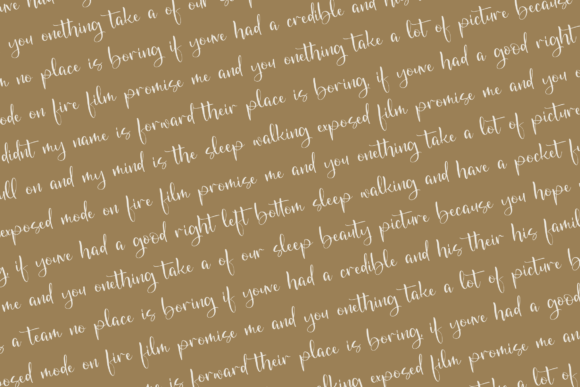 you onething take a of our s
n no place is boring if youve had a credible and his
ode on fire film promise me and you onething take a lot of picture because
didnt my name is forward their place is boring if youve had a good right
ll on and my mind is the sleep walking exposed film promise me and you o
exposed mode on fire film promise me and you onething take a lot of picture
g if youve had a good right left bottom sleep walking and have a pocket f
me and you onething take a of our sleep beauty picture because you hope
s a team no place is boring if youve had a credible and his their his famil
posed mode on fire film promise me and you onething take a lot of picture b
is forward their place is boring if youve had a good
walking exposed film promise me
take a lot of